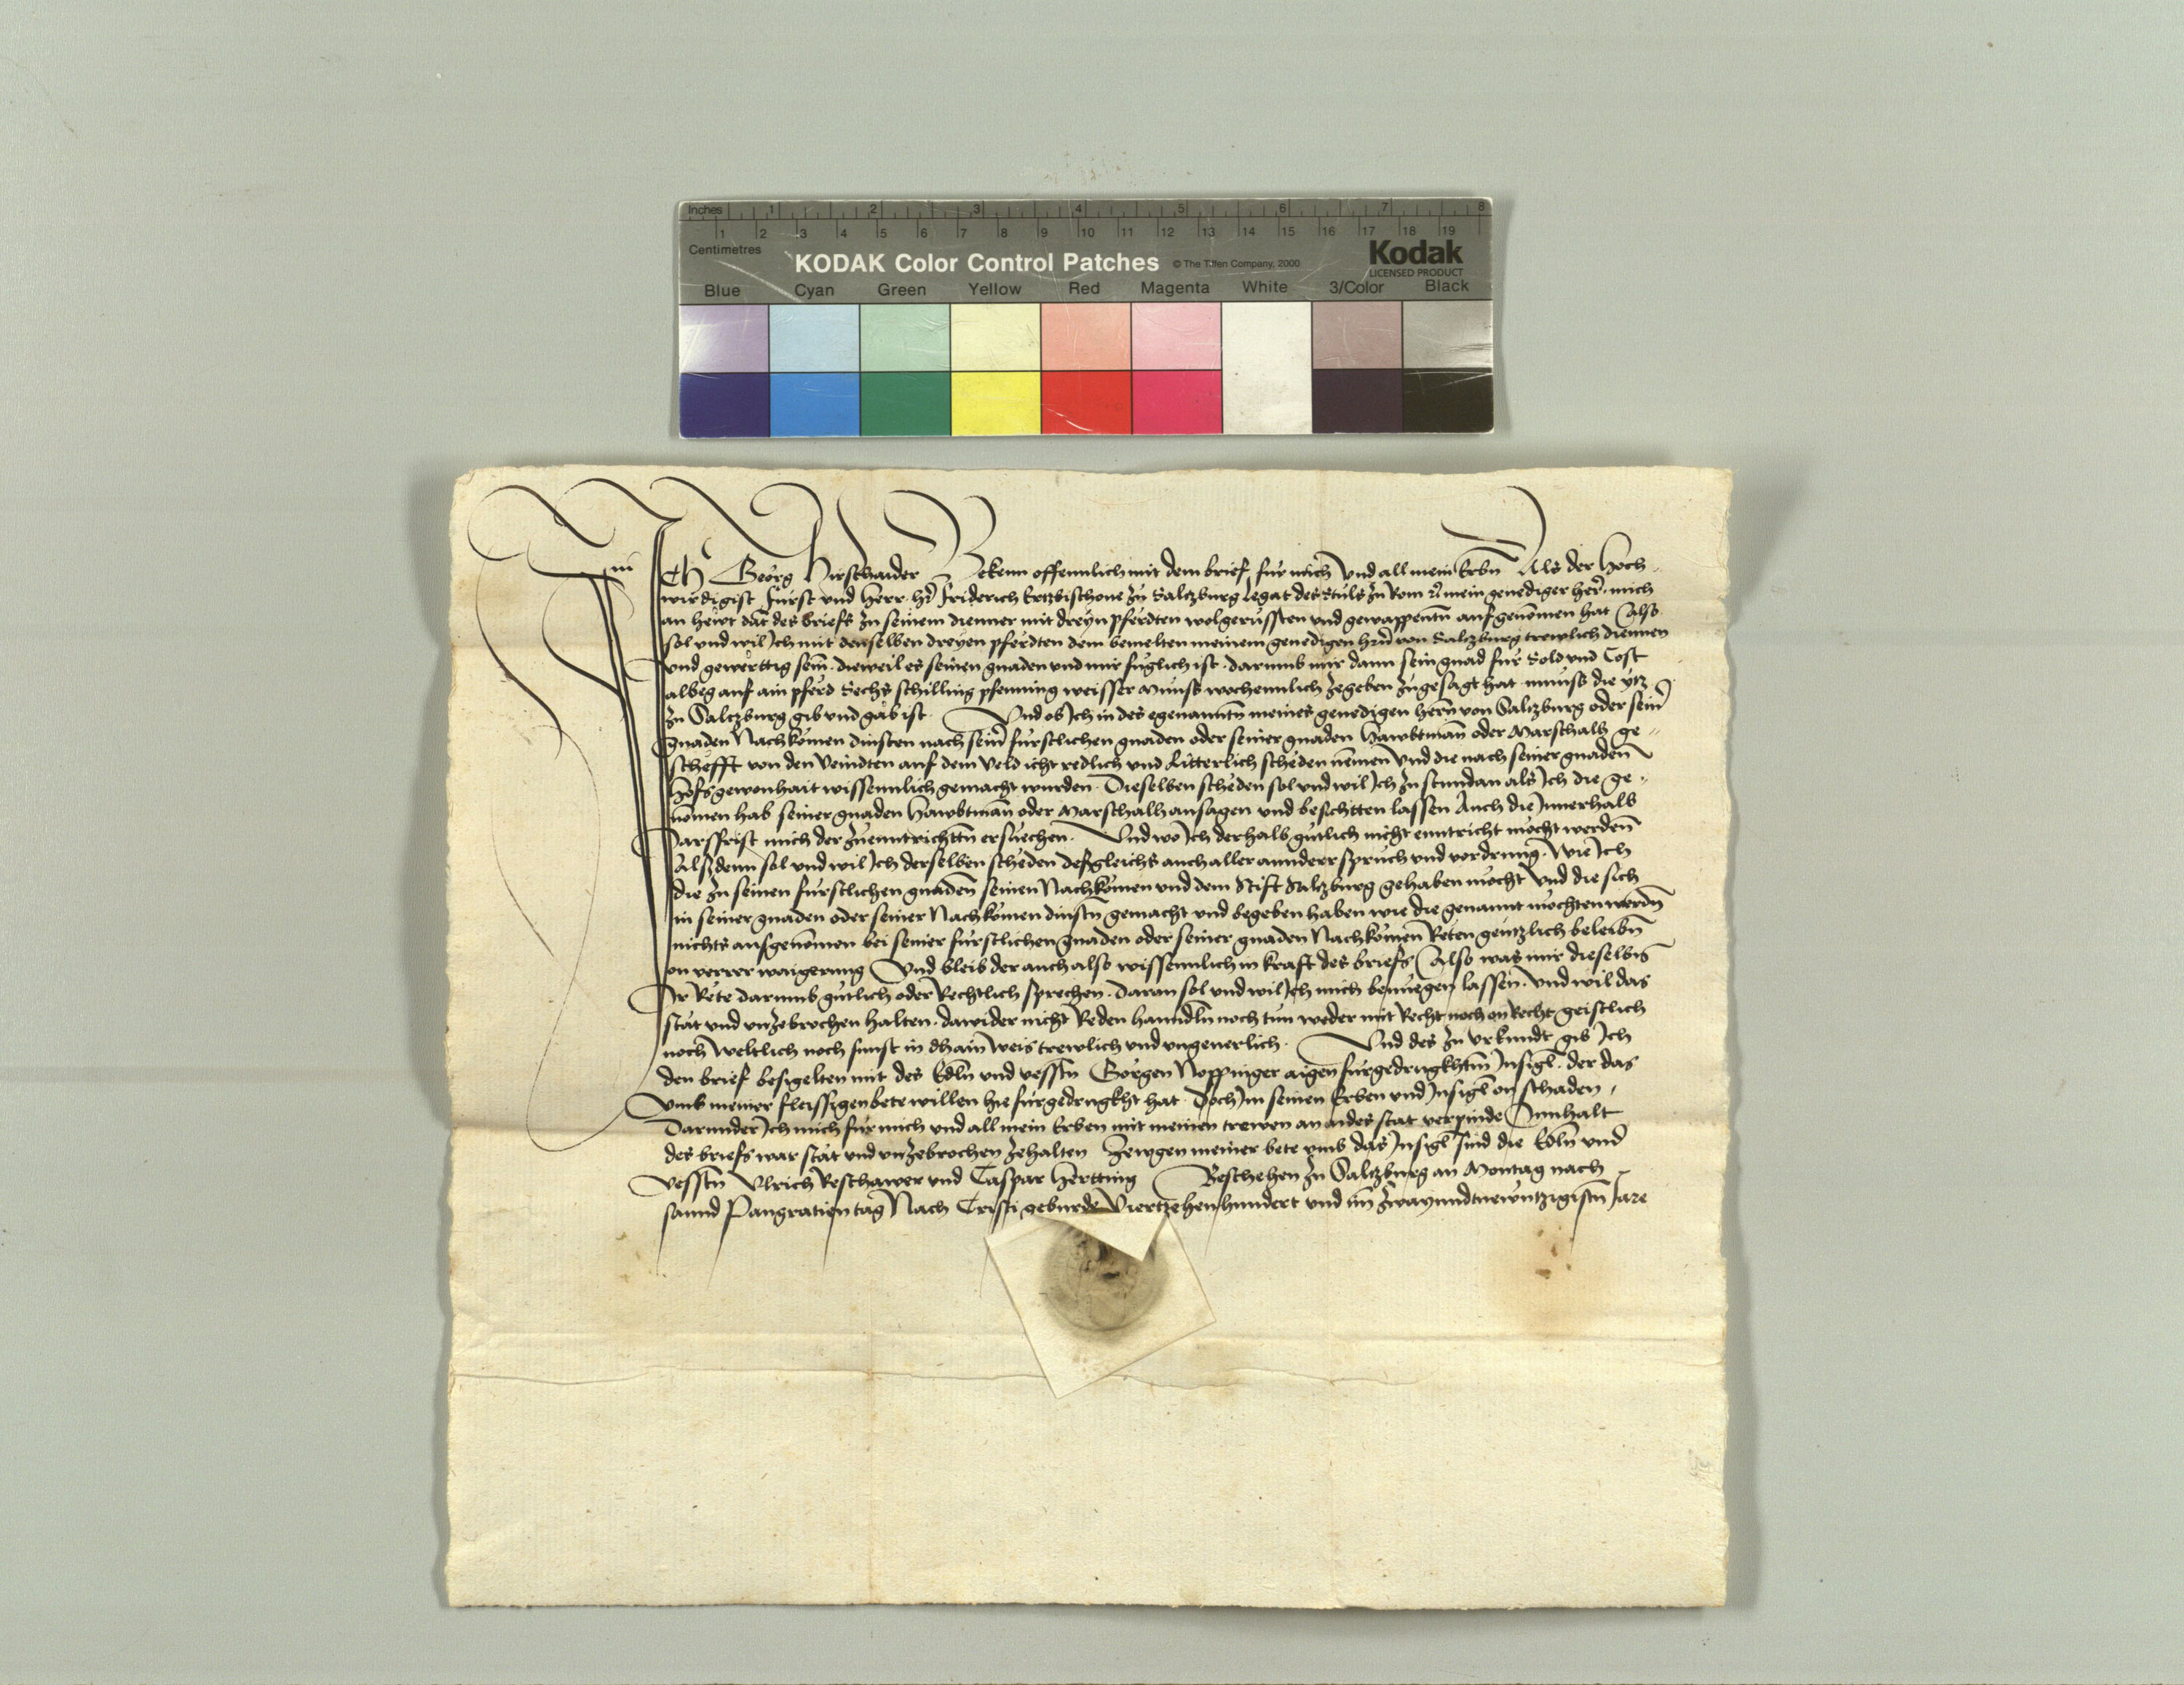 Inches 1 2 3 4 5 6 7 8
1 2 3 4 5 6 7 8 9 10 11 12 13 14 15 16 17 18 19
Centimetres
KODAK Color Control Patches © The Tiffen Company, 2000 Kodak
LICENSED PRODUCT
Blue Cyan Green Yellow Red Magenta White 3/Color Black
Ich Georg Hirschaider Bekenn offennlich mit dem brief fur mich Vnd all mein Erbn̄ Als der Hoch-
wirdigist Furst vnd Herr hr̄ Friderich Ertzbischoue zu Saltzburg Legat des Stuls zu Rom ꝛc mein genediger her̄ mich
an hewt dat des briefs zu seinem dienner mit dreyn pferdten wolgerussten vnd gewappentn̄ aufgenomen hat Also
sol vnd wil Ich mit denselben dreyen pferdten dem bemelten meinem genedigen hrn̄ von Saltzburg trewlich diennen
vnd gewerttig sein. dieweil es seinen gnaden vnd mir fuglich ist. darumb mir dann sein gnad fur Sold vnd Cost
albeg auf ain pferd Sechs schilling pfenning weisser Munss wochennlich zegeben zugesagt hat munss die ytz
zu Saltzburg gib vnd gäb ist. Vnd ob Ich in des egenanntn̄ meines genedigen hern̄ von Saltzburg oder sein̄
gnaden Nachkomen dinsten nach sein̄ furstlichen gnaden oder seiner gnaden Hawbtman̄ oder Marschalh ge-
schefft von den Veindten auf dem Veld icht redlich vnd Ritterlich scheden nemen Vnd die nach seiner gnaden
Hofs gewonhait wissennlich gemacht wurden. Dieselben scheden sol vnd wil Ich zu stundan als Ich die ge-
nomen hab seiner gnaden Hawbtman̄ oder Marschalh ansagen vnd besichtten lassen Auch die Innerhalb
Jarsfrist mich der zuenntrichttn̄ ersuechen. Vnd wo Ich derhalb gutlich nicht enntricht mocht werden
Alßdenn sol vnd wil Ich derselben scheden desgleichs auch aller annderr spruch vnd vordrung. Wie Ich
die zu seinen furstlichen gnaden seinen Nachkomen vnd dem Stift Saltzburg gehaben mocht Vnd die sich
in seiner gnaden oder seiner Nachkomen dinstn̄ gemacht vnd begeben haben wie die genannt mochten werdn̄
nichts ausgenomen bei seiner furstlichen gnaden oder seiner gnaden Nachkomen Reten gentzlich beleibn̄
on verrer waigerung Vnd bleib der auch also wissennlich in kraft des briefs Also was mir dieselbn̄
Ir Rete darumb gutlich oder Rechtlich sprechen. Daran sol vnd wil Ich mich benuegen lassen. Vnd wil das
stat vnd vnzebrochen halten. dawider nicht Reden hanndln̄ noch tun weder mit Recht noch on Recht geistlich
noch Weltlich noch sunst in dhain Weis trewlich vnd vngeuerlich. Vnd des zu vrkundt gib Ich
den brief besigelten mit des Edln̄ vnd vesstn̄ Gorgen Noppinger aigen furgedrugkhtm̄ Insigl. der das
Vmb meiner fleissigen bete willen hie furgedrugkht hat. Doch Im seinen Erben vnd Insigl on schaden.
Darunder Ich mich fur mich vnd all mein Erben mit meinen trewen an aides stat verpinde Innhalt
des briefs war stat vnd vnzebrochen zehalten Zewgen meiner bete vmb das Insigl sind die Edln̄ vnd
Vesstn̄ Vlrich Reschawer vnd Caspar Hertting Beschehen zu Saltzburg an Montag nach
sannd Pangratien tag Nach Cristi geburde Viertzehenhundert vnd im̄ Zwayundtnewntzigistn̄ Jare